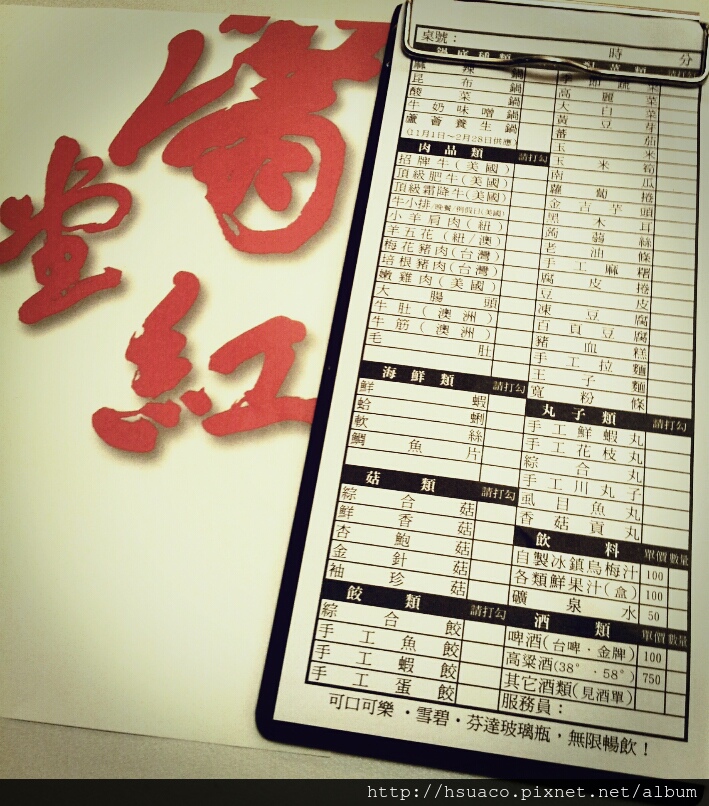 滿
堂
紅
桌號：
時 分
鍋底種類
麻辣鍋
昆布鍋
酸菜鍋
牛奶味噌鍋
蘆薈養生鍋
(11月1日～2月28日供應)
肉品類 請打勾
招牌牛(美國)
頂級肥牛(美國)
頂級霜降牛(美國)
牛小排
小羊肩肉(紐)
羊五花(紐/澳)
梅花豬肉(台灣)
培根豬肉(台灣)
嫩雞肉(美國)
大腸頭
牛肚(澳洲)
牛筋(澳洲)
毛肚
海鮮類 請打勾
鮮蝦
蛤蜊
軟絲
鯛魚片
菇類 請打勾
綜合菇
鮮香菇
杏鮑菇
金針菇
袖珍菇
餃類 請打勾
綜合餃
手工魚餃
手工蝦餃
手工蛋餃
請打勾
季節蔬菜
高麗菜
大白菜
黃豆芽
蕃茄
玉米
玉米筍
南瓜
蘿蔔
金吉芋頭
黑木耳
蒟蒻絲
老油條
手工麻糬
腐皮捲
豆皮
凍豆腐
百頁豆腐
豬血糕
手工拉麵
王子麵
寬粉條
丸子類 請打勾
手工鮮蝦丸
手工花枝丸
綜合丸
手工川丸子
虱目魚丸
香菇貢丸
飲料 單價 數量
自製冰鎮烏梅汁 100
各類鮮果汁(盒) 100
礦泉水 50
酒類 單價 數量
啤酒(台啤‧金牌) 100
高粱酒(38°‧58°) 750
其它酒類(見酒單)
服務員：
可口可樂‧雪碧‧芬達玻璃瓶，無限暢飲！
http://hsuaco.pixnet.net/album